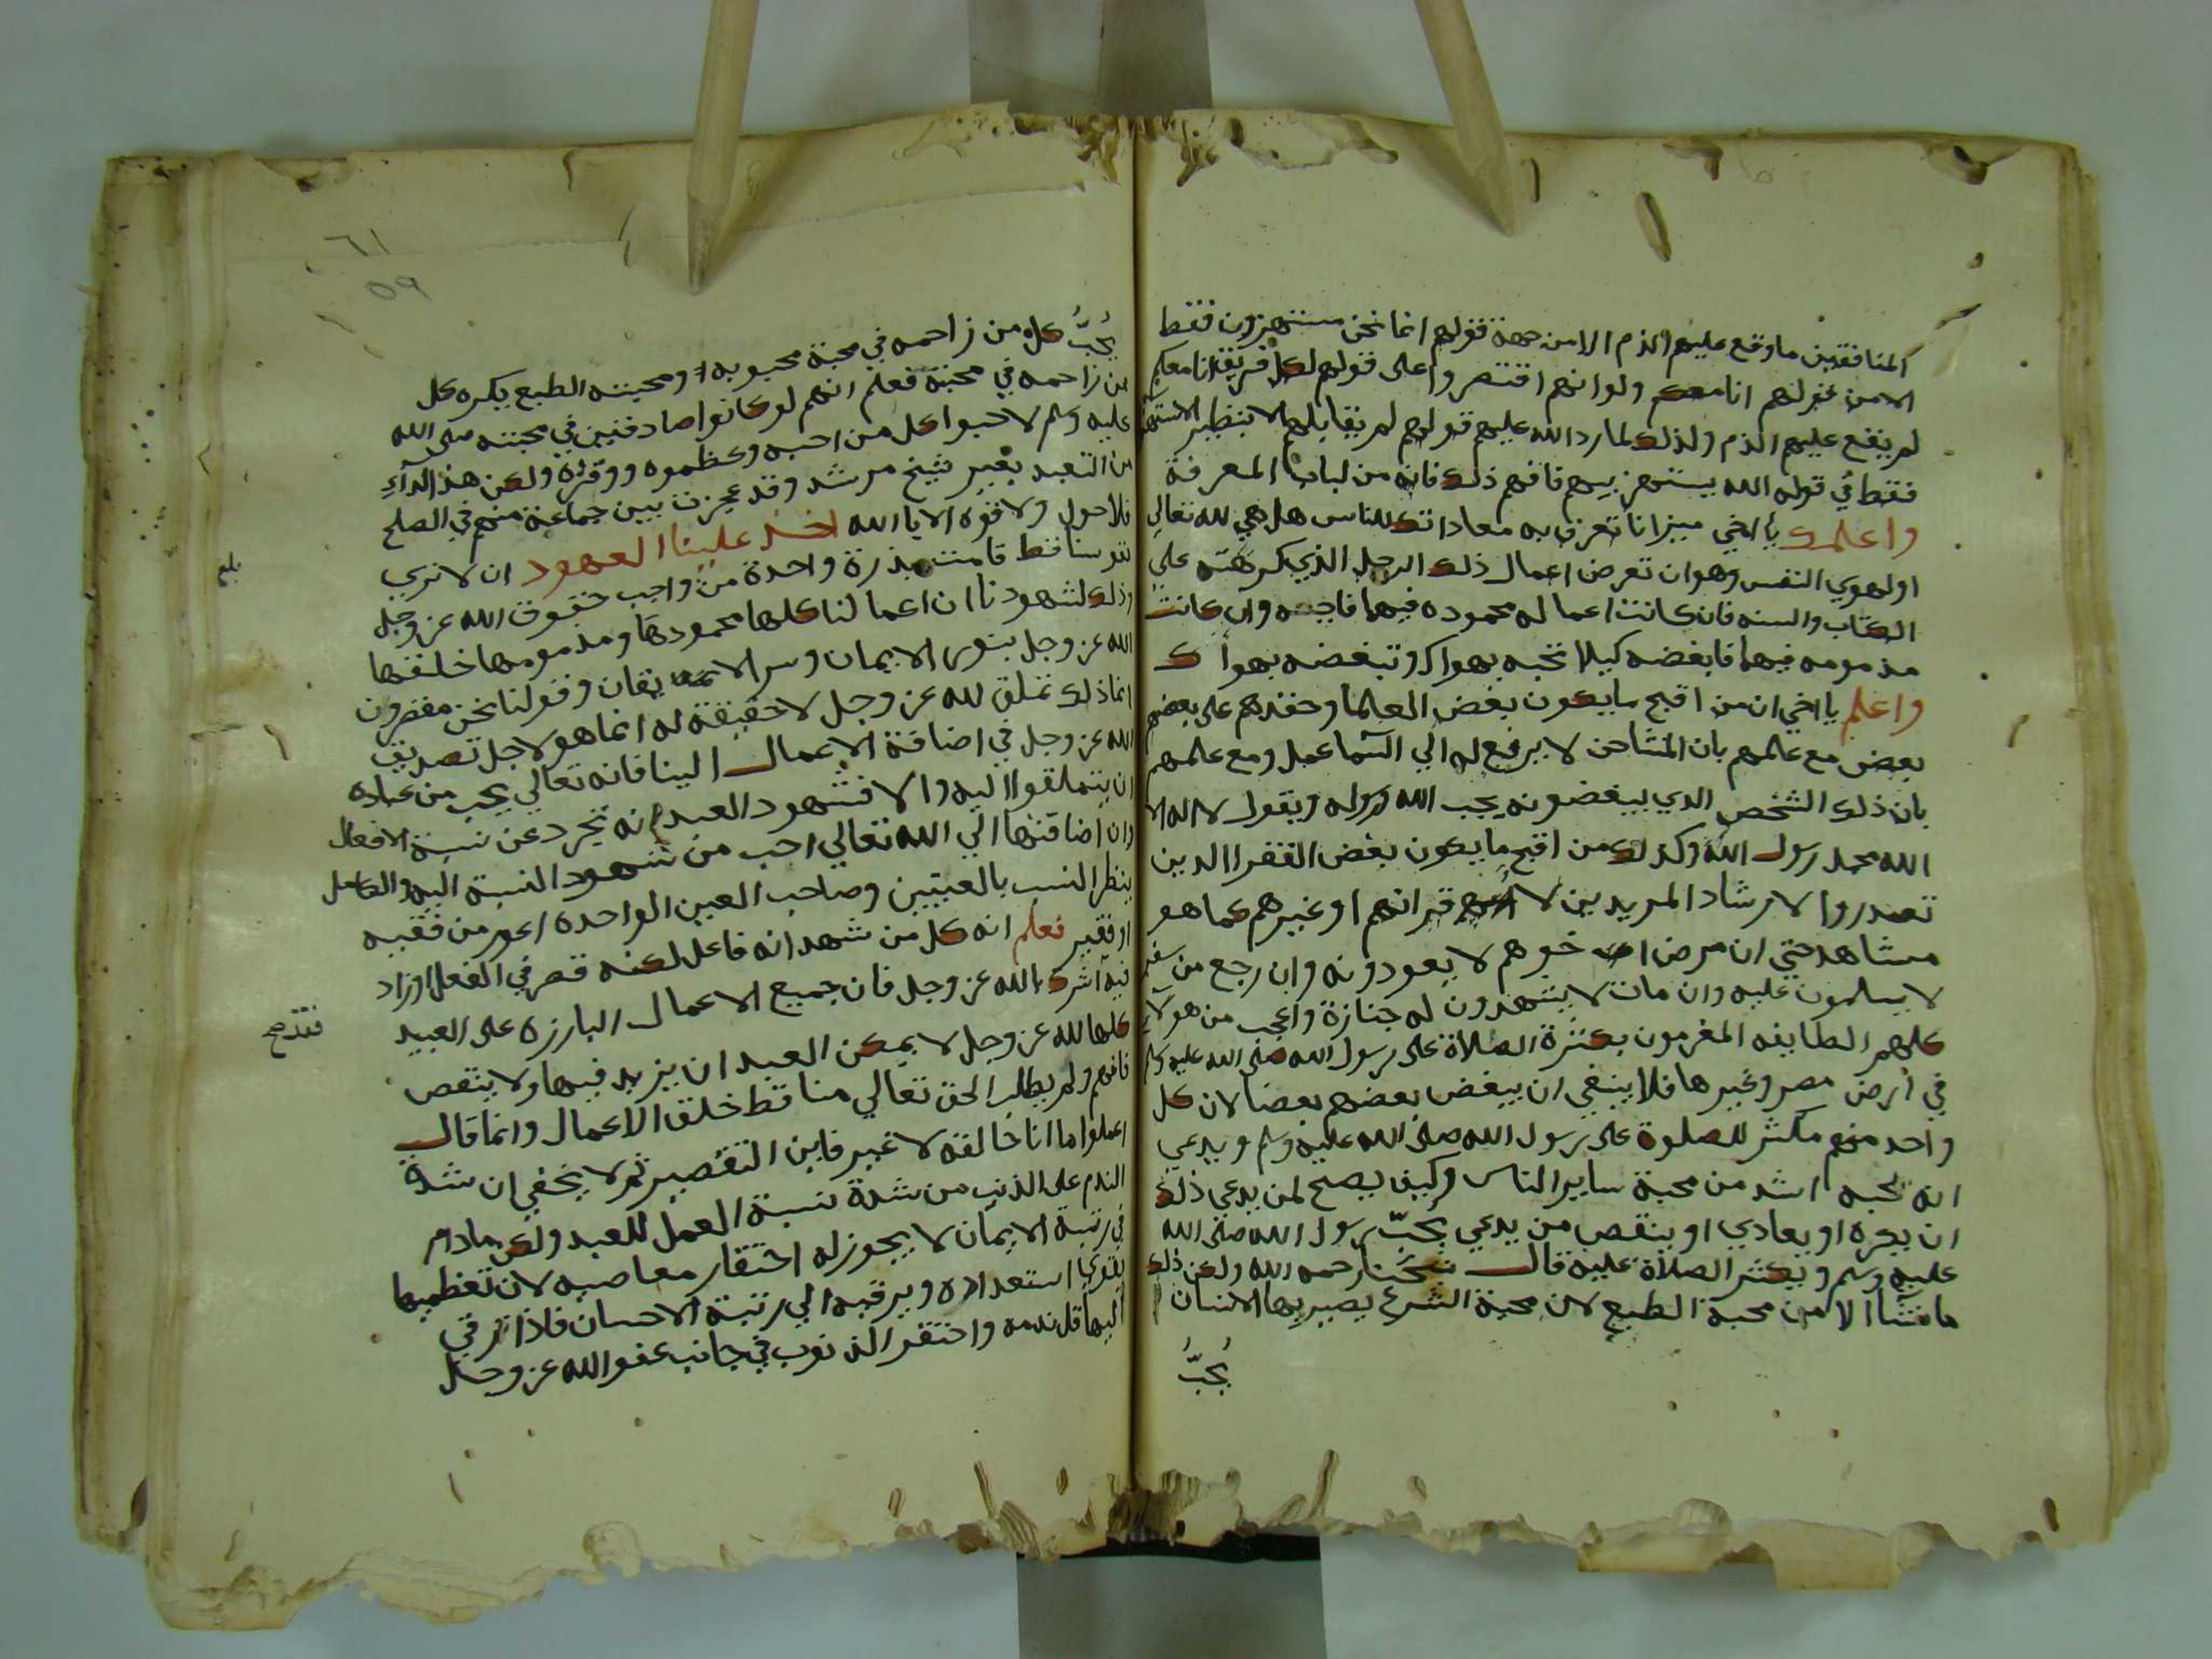 المنافقين ما وقع عليهم الذم الا من جهة قولهم انما نحن مستهزون فقط
الا من قولهم انا معكم ولو انهم اقتصروا على قولهم لكل فريق انا معكم
لم يقع عليهم الذم ولذلك لما رد الله عليهم قولهم لم يقابلهم الا بنظير الاستهزا
فقط في قوله الله يستهزي بهم فافهم ذلك فانه من لباب المعرفة
واعلمك يا اخي ميزانا تعرف به معاداتك للناس هل هي لله تعالي
او لهوي النفس وهو ان تعرض اعمال ذلك الرجل الذي كرهته علي
الكتاب والسنه فان كانت اعماله محموده فيهما فاحبه وان كانت
مذمومه فيهما فابغضه كيلا تحبه بهواك وتبغضه بهواك
واعلم يا اخي ان من اقبح ما يكون بغض العلما وحقدهم على بعضهم
بعض مع علمهم بان المشاحن لا يرفع له الي السما عمل ومع علمهم
بان ذلك الشخص الذي يبغضونه يحب الله ورسوله ويقول لا اله الا
الله محمد رسول الله وكذلك من اقبح ما يكون بغض الفقرا الذين
تصدروا لارشاد المريدين لا قرانهم او غيرهم كما هو
مشاهد حتي ان مرض اخوهم لا يعودونه وان رجع من سفر
لا يسلمون عليه وان مات لا يشهدون له جنازة واعجب من هولاء
كلهم الطايفه المغرمون بكثرة الصلاة على رسول الله صلى الله عليه وسلم
في ارض مصر وغيرها فلا ينبغي ان يبغض بعضهم بعضا لان كل
واحد منهم مكثر للصلوة على رسول الله صلى الله عليه وسلم ويدعي
انه يحبه اشد من محبة ساير الناس وكيف يصح لمن يدعي ذلك
ان يكره او يعادي او ينقص من يدعي يحب رسول الله صلى الله
عليه وسلم ويكثر الصلاة عليه قال شيخنا رحمه الله ولعن ذلك
ما نشا الا من محبة الطبع لان محبة الشرع يصير بها الانسان
يحب
٦١
٥٩
يحب كل من زاحمه في محبة محبوبه ومحبته الطبع يكره كل
من زاحمه في محبته فعلم انهم لو كانوا صادقين في محبته صلى الله
عليه وسلم لاحبوا كل من احبه وعظموه ووقروه ولكن هذا الداء
من التعبد بغير شيخ مرشد وقد عجزت بين جماعة منهم في الصلح
فلا حول ولا قوه الا بالله اخذ علينا العهود ان لا نري
نفوسنا قط قامت بذرة واحدة من واجب حقوق الله عز وجل
وذلك لشهودنا ان اعمالنا كلها محمودها ومذمومها خلقها
الله عز وجل بنور الايمان وسر الايقان وقولنا نحن مقصرون
انما ذلك تملق لله عز وجل لا حقيقة له انما هو لاجل تصديق
الله عز وجل في اضافة الاعمال الينا فانه تعالي يحب من عباده
ان يتملقوا اليه والا فشهود العبد انه تجرد عن نسبة الافعال
وان اضافتها الي الله تعالي احب من شهود النسبة اليه والكامل
ينظر النسب بالعينين وصاحب العين الواحده اعور من فقيه
او فقير فعلم انه كل من شهد انه فاعل لكنه قصر في الفعل او زاد
فيه اشرك بالله عز وجل فان جميع الاعمال البارزه على العبيد
كلها لله عز وجل لا يمكن العبد ان يزيد فيها ولا ينقص
فافهم ولم يطلب الحق تعالي منا قط خلق الاعمال وانما قال
اعملوا ما انا خالقه لا غير فاين التقصير ثم لا يخفي ان شدة
الندم على الذنب من شدة نسبة العمل للعبد ولكن ما دام
في رتبة الايمان لا يجوز له احتقار معاصيه لان تعظيمها
يقوي استعداده ويرقيه الي رتبة الاحسان فاذا ترقي
اليها قل ندمه واحتقر الذنوب في جانب عفو الله عز وجل
بلغ